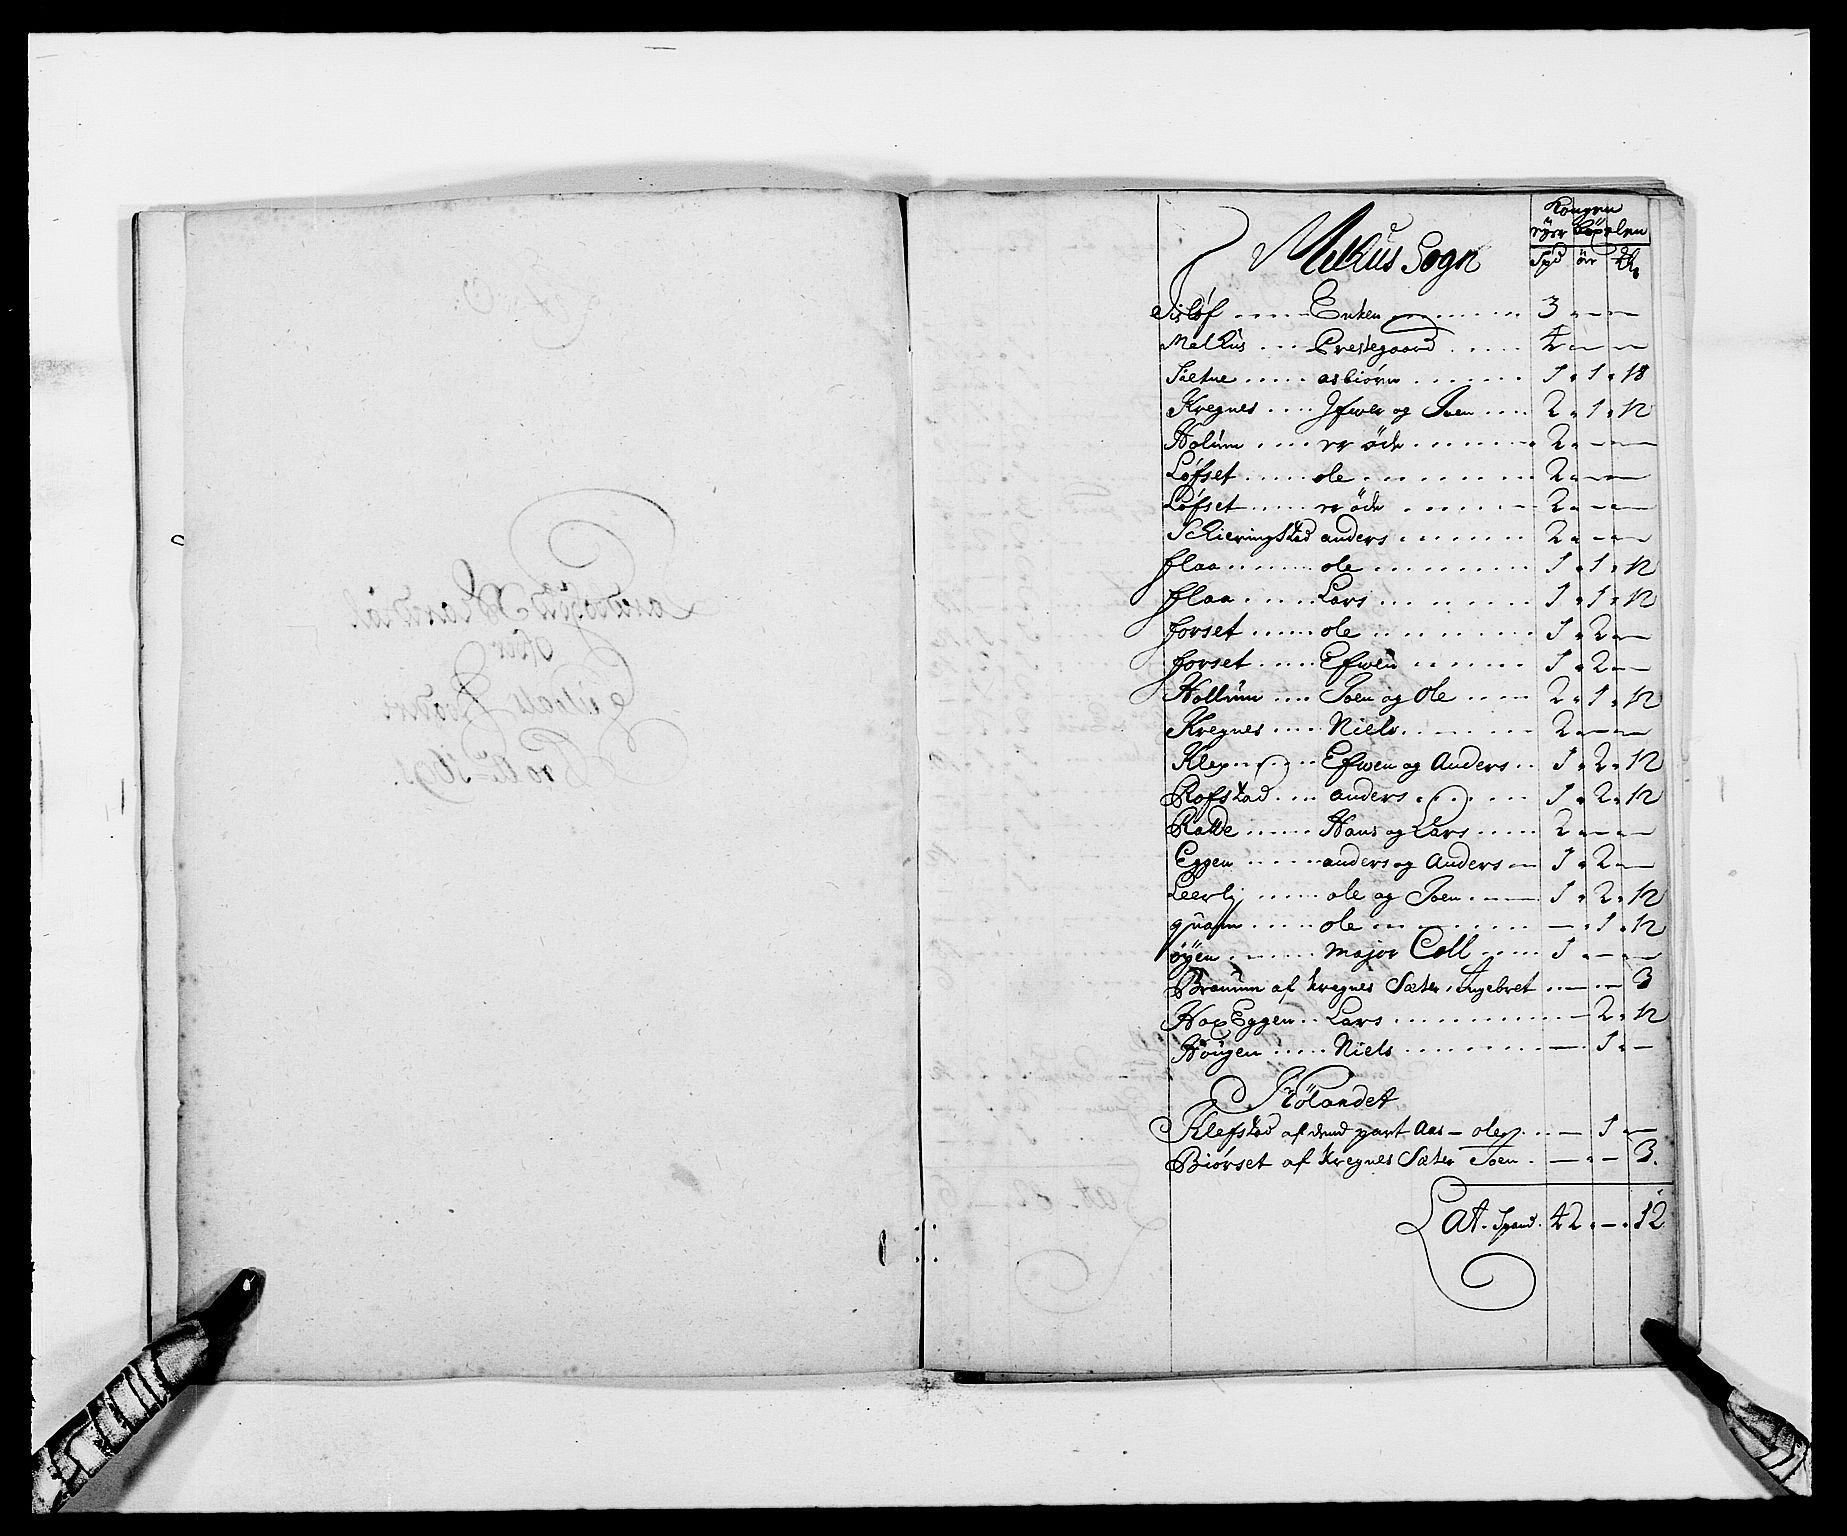 Kongen
eÿer böxelen
Melhus Sogn Spd öre Mk
Sisløf Enken 3 - -
Melhus Prestegaard 4 - -
Sæltne asbiörn 1 1 18
Kregnes Jfwer og Joen 2 1 12
Holum er öde 2 - -
Løfset ole 2 - -
Løfset er öde 2 - -
Schieringstad anders 2 - -
flaa ole 1 1 12
flaa Lars 1 1 12
forset ole 1 2 -
forset Efwen 1 2 -
Hollum Joen og Ole 2 1 12
Kregnes Niels 2 - -
Klep Efwen og Anders 1 2 12
Rofstad anders 1 2 12
Ratte Hans og Lars 2 - -
Eggen anders og Anders 1 2 -
Leerli ole og Joen 1 2 12
quam ole - 1 12
öÿen major Coll 1 - -
Bramm af Kregnes Sæter, Ingebret - - 3
Hop Eggen Lars - 2 12
Hougen Niels - 1 -
Hölandet
Klefstad af dend part Aas - ole - 1 -
Biörset af Kregnes Sæter Joen - - 3
Lat. Spand 42 - 12